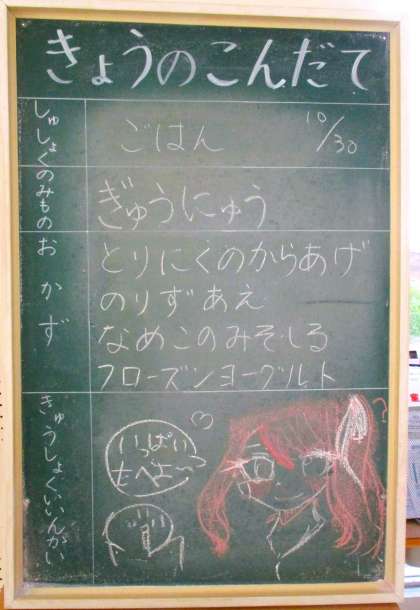 きょうのこんだて
しゅしょくのみもの
ごはん
10/30
ぎゅうにゅう
おかず
とりにくのからあげ
のりずあえ
なめこのみそしる
フローズンヨーグルト
きゅうしょくいいんかい
いっぱい
たべよ〜
?